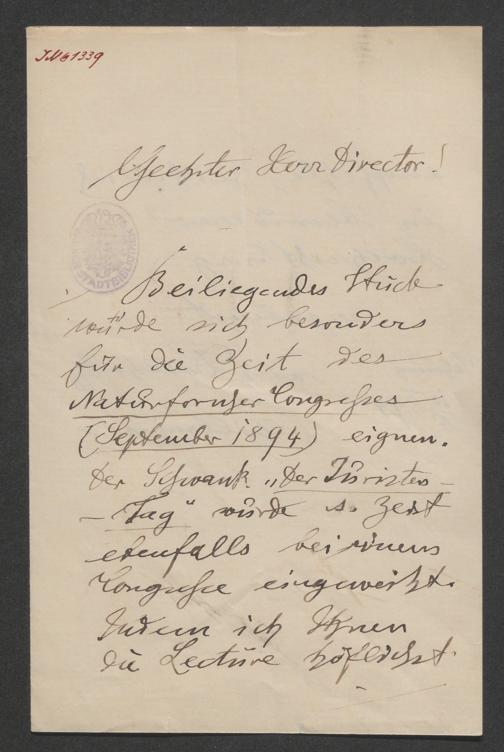 JN 61339
Geehrter Herr Director!
STADTBIBLIOTHEK
Beiliegendes Stück
würde sich besonders
für die Zeit des
Naturforscher Congresses
(September 1894) eignen.
Der Schwank „Der Juristen-
-Tag" wurde s. Zeit
ebenfalls bei einem
Congresse eingeweiht.
Indem ich Ihnen
die Lectüre höflichst